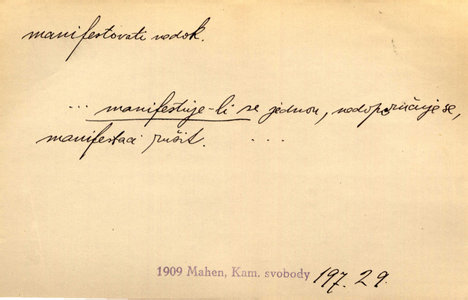 manifestovati nedok.
... manifestuje-li se jednou, nedoporučuje se,
manifestaci rušit. ...
1909 Mahen, Kam. svobody 197.29.